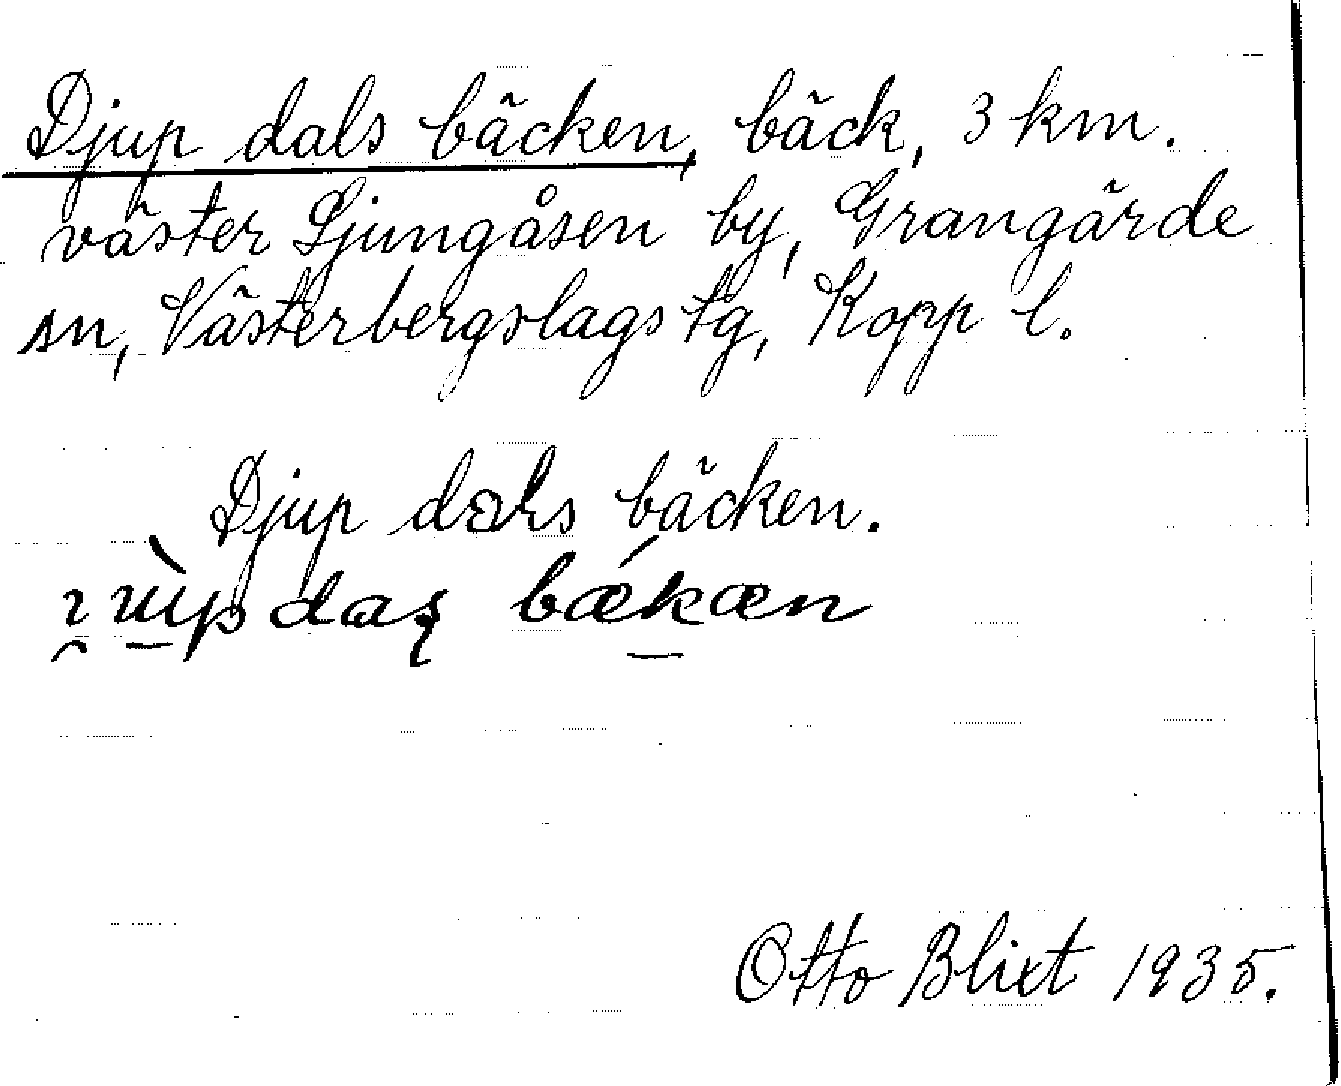 Djup dals bäcken, bäck, 3 km.
väster Ljungåsen by, Grangärde
sn, Västerbergslags tg, Kopp l.
Djup dals bäcken.
bækæn
Otto Blixt 1935.